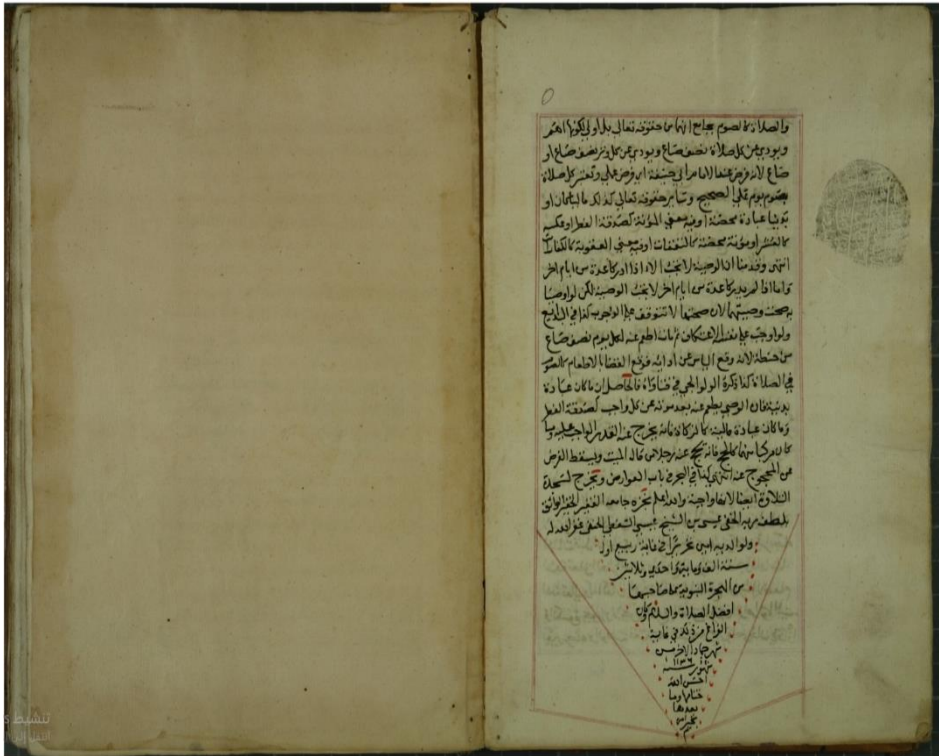 والصلاة كالصوم بجامع انهما من حقوقه تعالى بل اولى لكونها اهم
ويودي عن كل صلاة نصف صاع ويودي عن كل وتر نصف صاع او
صاع لانه فرض عند الامام ابي حنيفة اي فرض عملي وتعتبر كل صلاة
بصوم يوم على الصحيح وسائر حقوقه تعالى كذلك ماليا كان او
بدنيا عبادة محضة او فيه معنى المؤنة كصدقة الفطر او عكسه
كالعشر او مؤنة محضة كالنفقات او فيه معنى العقوبة كالكفارات
انتهى وقدمنا ان الوصية لا تجب الا اذا ادرك عدة من ايام اخر
واما اذا لم يدرك عدة من ايام اخر لا تجب الوصية لكن لو اوصيا
صحت وصيتهما لان صحتها لا تتوقف على الوجوب كذا في البدايع
ولو اوجب على نفسه الاعتكاف ثم مات اطعم عنه لكل يوم نصف صاع
من حنطة لانه وقع الياس عن ادايه فوقع القضا بالاطعام كالصوم
في الصلاة كذا ذكره الولوالجي في فتاواه فالحاصل ان ما كان عبادة
بدنية فان الوصي يطعم عنه بعد موته عن كل واجب كصدقة الفطر
وما كان عبادة مالية كالزكاة فانه يخرج عنه القدر الواجب عليه وما
كان مركبا منهما كالحج فانه يحج عنه رجلا من مال الميت ويسقط الفرض
عن المحجوج عنه انتهى كذا في البحر في باب العوارض وتخرج لسجدة
التلاوة ايضا لانها واجبة والله اعلم حرره جامعه الفقير الحقير الواثق
بلطف ربه الخفي عيسى بن الشيخ عيسى السفطي الحنفي غفر الله له
ولوالديه امين تحريرا في غاية ربيع اول
سنة الف ومايه واحدى وثلاثين
من الهجرة النبوية على صاحبها
افضل الصلاة والسلام وكان
الفراغ من ذلك في غاية
شهر جماد الاخر من
شهور سنة
١١٣٦
احسن الله
ختامها وما
بعدها
بخير امين
م
تنشيط